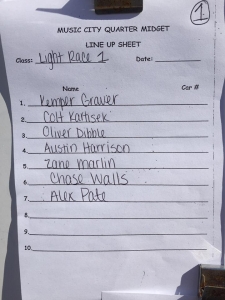 1
MUSIC CITY QUARTER MIDGET
LINE UP SHEET
Class: Light Race 1 Date:
Name Car #
1. Kemper Graver
2. Colt Kartisek
3. Oliver Dibble
4. Austin Harrison
5. Zane Marlin
6. Chase Walls
7. Alex Pate
8.
9.
10.